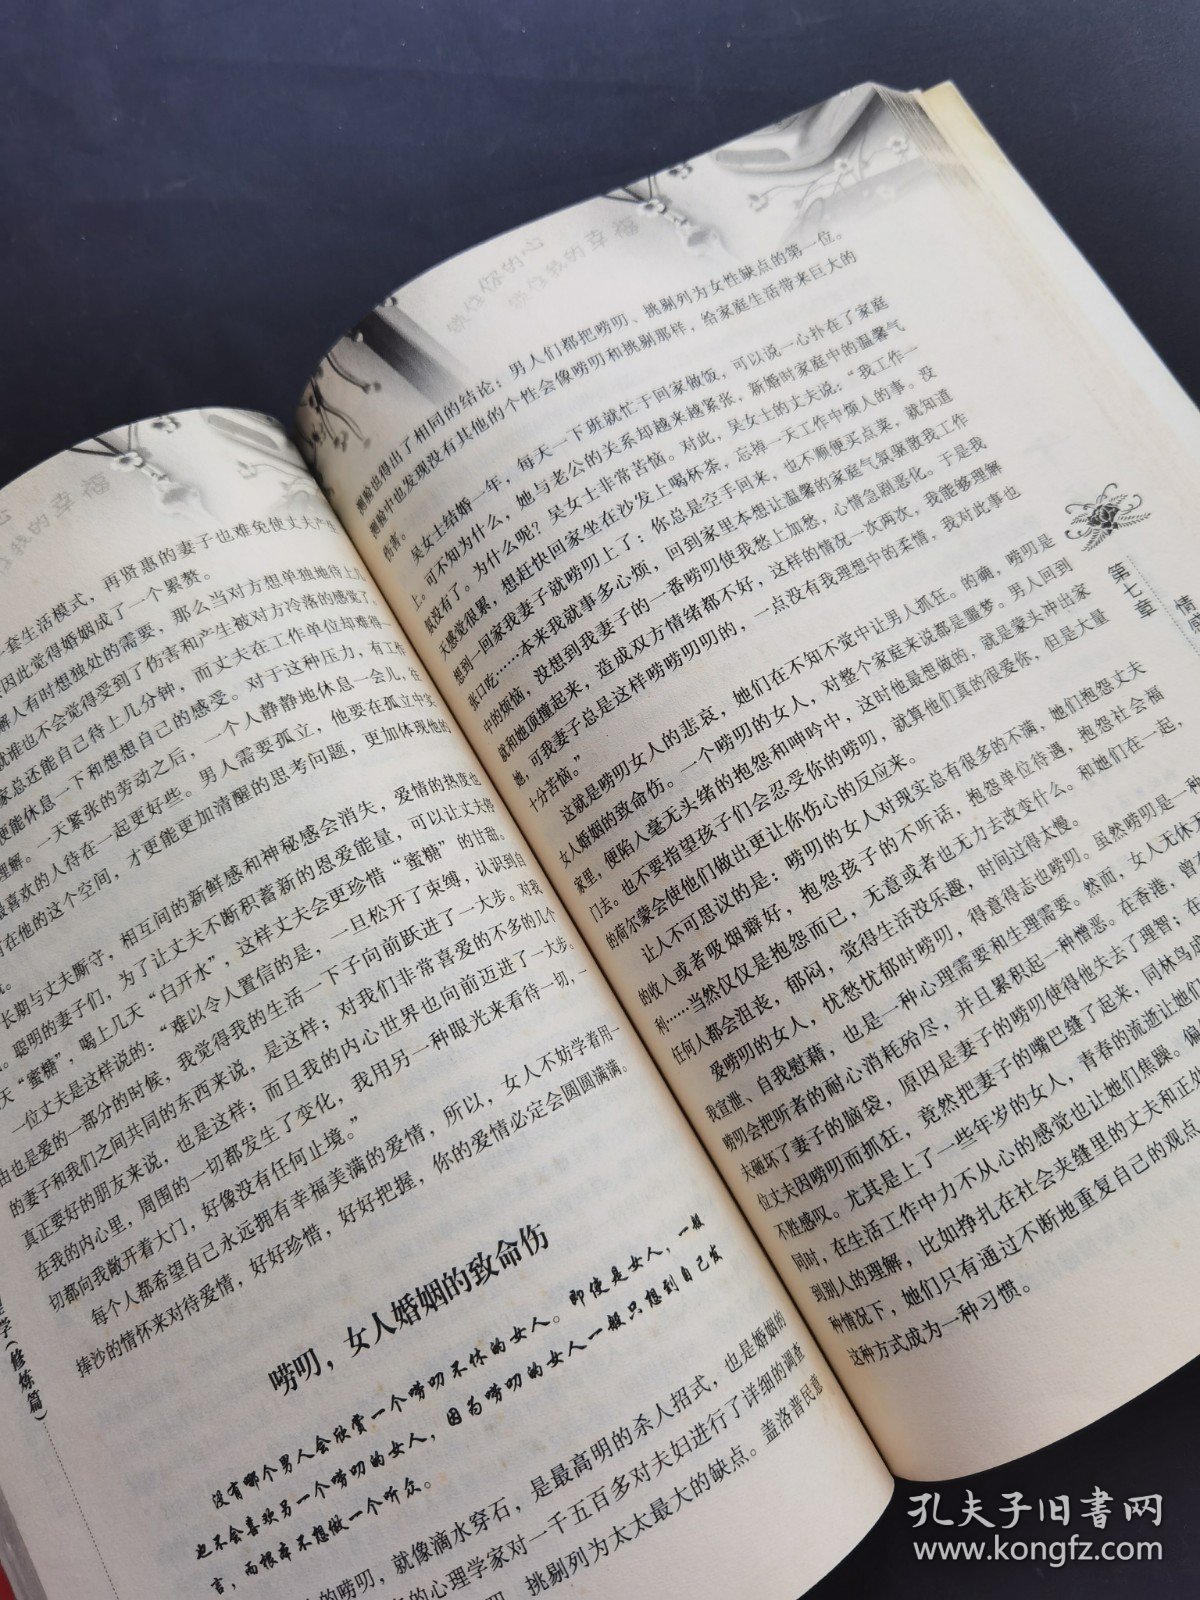 再贤惠的妻子也难免使丈夫产
一套生活模式，
因此觉得婚姻成了一个累赘。
解人有时想独处的需要，那么当对方想单独地待上几
就谁也不会觉得受到了伤害和产生被对方冷落的感觉了。
家总还能自己待上几分钟，而丈夫在工作单位却难得一
便能休息一下和想想自己的感受。对于这种压力，有工作
理解。一天紧张的劳动之后，一个人静静地休息一会儿，往
最喜欢的人待在一起更好些。男人需要孤立，他要在孤立中实
有在他的这个空间，才更能更加清醒的思考问题，更加体现他的
长期与丈夫厮守，相互间的新鲜感和神秘感会消失，爱情的热度也
。聪明的妻子们，为了让丈夫不断积蓄新的恩爱能量，可以让丈夫停
天“蜜糖”，喝上几天“白开水”，这样丈夫会更珍惜“蜜糖”的甘甜。
一位丈夫是这样说的：“难以令人置信的是，一旦松开了束缚，认识到自
由也是爱的一部分的时候，我觉得我的生活一下子向前跃进了一大步。对我
的妻子和我们之间共同的东西来说，是这样；对我们非常喜爱的不多的几个
真正要好的朋友来说，也是这样；而且我的内心世界也向前迈进了一大步。
在我的内心里，周围的一切都发生了变化，我用另一种眼光来看待一切，一
切都向我敞开着大门，好像没有任何止境。”
每个人都希望自己永远拥有幸福美满的爱情，所以，女人不妨学着用一
捧沙的情怀来对待爱情，好好珍惜，好好把握，你的爱情必定会圆圆满满。
唠叨，女人婚姻的致命伤
没有哪个男人会欣赏一个唠叨不休的女人。即使是女人，一般
也不会喜欢另一个唠叨的女人，因为唠叨的女人一般只想到自己发
言，而根本不想做一个听众。
的唠叨，就像滴水穿石，是最高明的杀人招式，也是婚姻的
的心理学家对一千五百多对夫妇进行了详细的调查
叨、挑剔列为太太最大的缺点。盖洛普民意
学（修炼篇）
懒住你的心
懒住我的幸福
测验也得出了相同的结论：男人们都把唠叨、挑剔列为女性缺点的第一位。
测验中也发现没有其他的个性会像唠叨和挑剔那样，给家庭生活带来巨大的
伤害。
吴女士结婚一年，每天一下班就忙于回家做饭，可以说一心扑在了家庭
上。可不知为什么，她与老公的关系却越来越紧张，新婚时家庭中的温馨气
氛没有了。为什么呢？吴女士非常苦恼。对此，吴女士的丈夫说：“我工作一
天感觉很累，想赶快回家坐在沙发上喝杯茶，忘掉一天工作中烦人的事。没
想到一回家我妻子就唠叨上了：你总是空手回来，也不顺便买点菜，就知道
张口吃……本来我就事多心烦，回到家里本想让温馨的家庭气氛驱散我工作
中的烦恼，没想到我妻子的一番唠叨使我愁上加愁，心情急剧恶化。于是我
就和她顶撞起来，造成双方情绪都不好，这样的情况一次两次，我能够理解
她，可我妻子总是这样唠唠叨叨的，一点没有我理想中的柔情，我对此事也
十分苦恼。”
这就是唠叨女人的悲哀，她们在不知不觉中让男人抓狂。的确，唠叨是
女人婚姻的致命伤。一个唠叨的女人，对整个家庭来说都是噩梦。男人回到
家里，便陷入毫无头绪的抱怨和呻吟中，这时他最想做的，就是蒙头冲出家
门去。也不要指望孩子们会忍受你的唠叨，就算他们真的很爱你，但是大量
的荷尔蒙会使他们做出更让你伤心的反应来。
让人不可思议的是：唠叨的女人对现实总有很多的不满，她们抱怨丈夫
的收入或者吸烟癖好，抱怨孩子的不听话，抱怨单位待遇，抱怨社会福
利……当然仅仅是抱怨而已，无意或者也无力去改变什么。和她们在一起，
任何人都会沮丧，郁闷，觉得生活没乐趣，时间过得太慢。
爱唠叨的女人，忧愁忧郁时唠叨，得意得志也唠叨。虽然唠叨是一种
我宣泄、自我慰藉，也是一种心理需要和生理需要。然而，女人无休无
唠叨会把听者的耐心消耗殆尽，并且累积起一种憎恶。在香港，曾
夫砸坏了妻子的脑袋，原因是妻子的唠叨使得他失去了理智；在
位丈夫因唠叨而抓狂，竟然把妻子的嘴巴缝了起来，同林鸟成
不胜感叹。尤其是上了一些年岁的女人，青春的流逝让她们
同时，在生活工作中力不从心的感觉也让她们焦躁。偏
到别人的理解，比如挣扎在社会夹缝里的丈夫和正处
种情况下，她们只有通过不断地重复自己的观点
这种方式成为一种习惯。
第七章
情感
孔夫子旧书网
www.kongfz.com